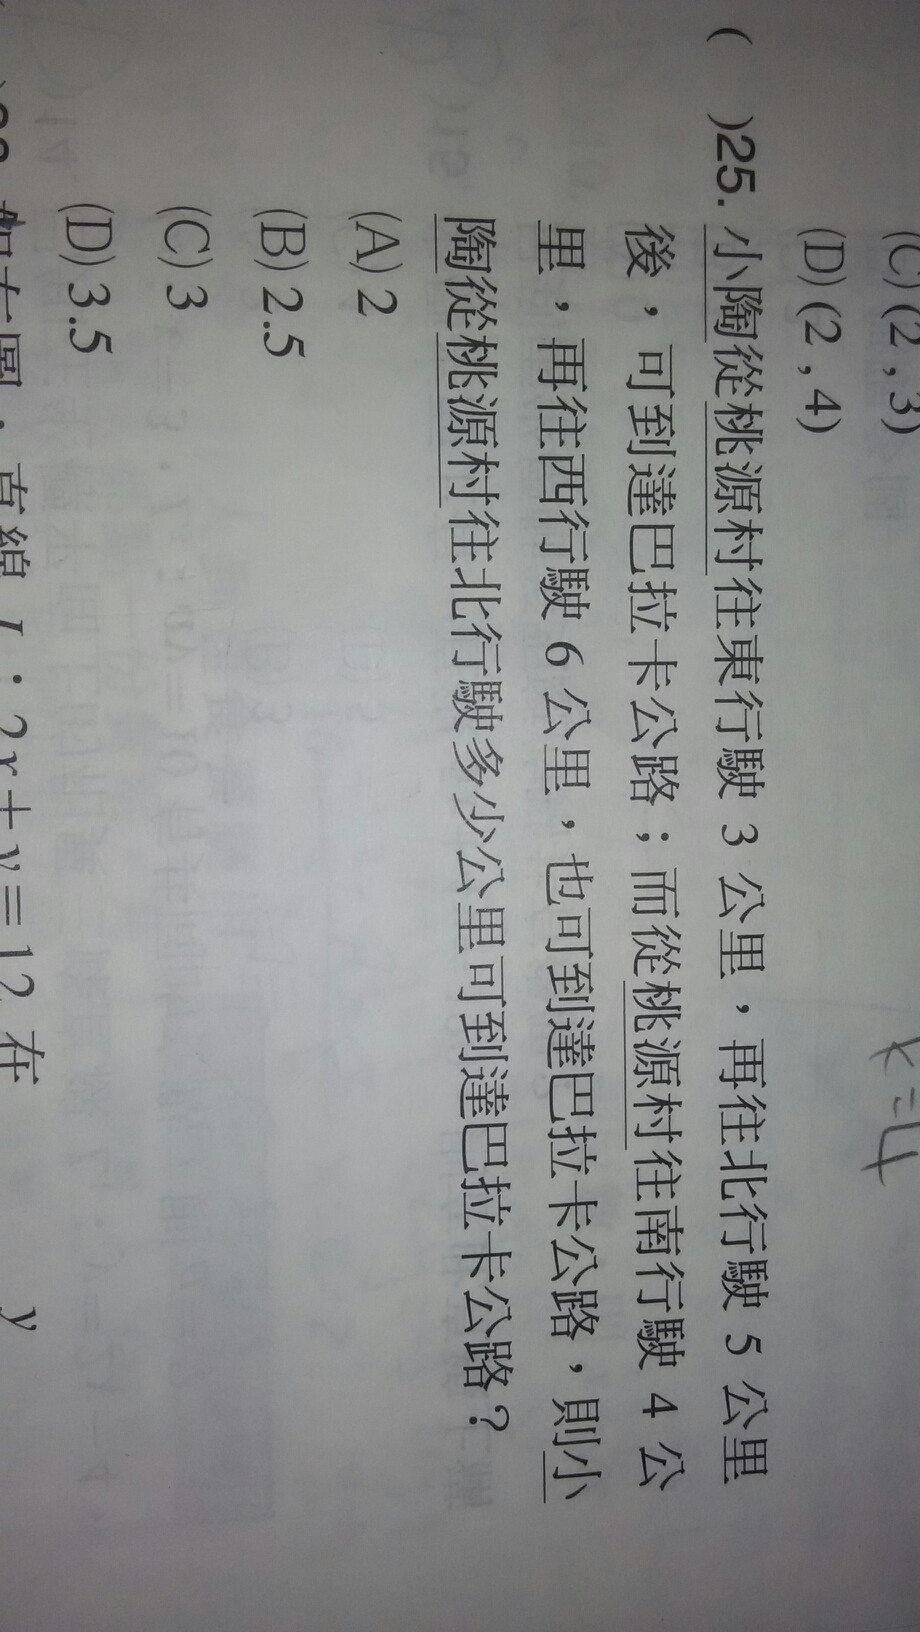 (C)(2 , 3)
(D)(2 , 4)
k=4
(　)25. 小陶從桃源村往東行駛 3 公里，再往北行駛 5 公里
後，可到達巴拉卡公路；而從桃源村往南行駛 4 公
里，再往西行駛 6 公里，也可到達巴拉卡公路，則小
陶從桃源村往北行駛多少公里可到達巴拉卡公路？
(A) 2
(B) 2.5
(C) 3
(D) 3.5
如右圖，直線 L：2x＋y＝12 在
y